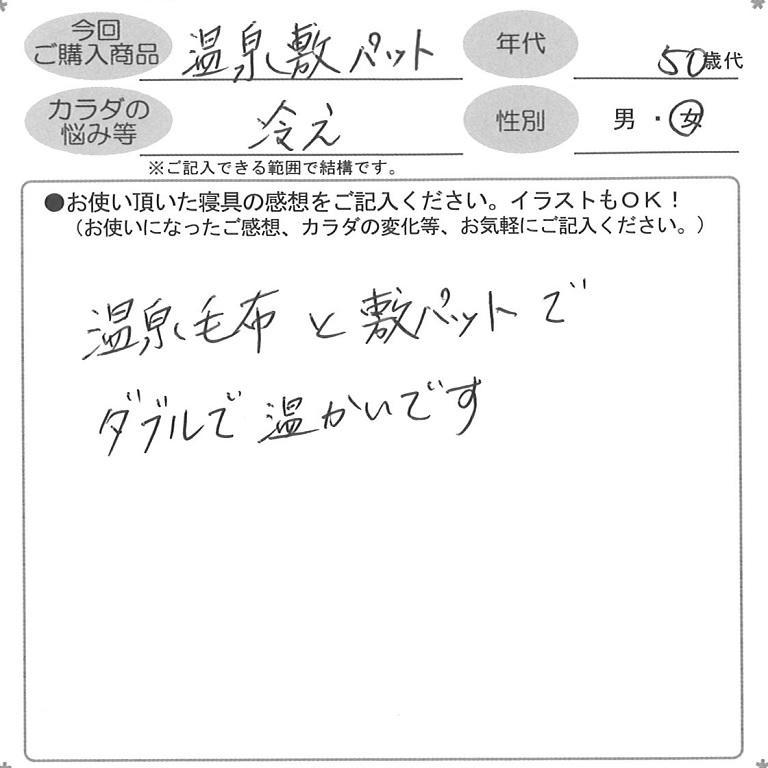 今回
ご購入商品
温泉敷パット
年代
50歳代
カラダの
悩み等
冷え
性別
男・女
※ご記入できる範囲で結構です。
●お使い頂いた寝具の感想をご記入ください。イラストもOK！
（お使いになったご感想、カラダの変化等、お気軽にご記入ください。）
温泉毛布と敷パットで
ダブルで温かいです